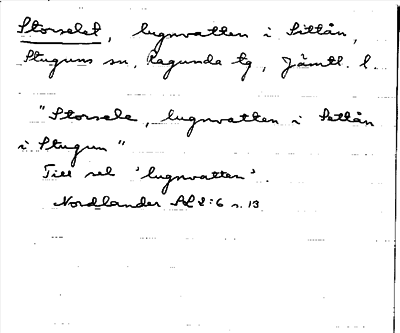 Storselet, lugnvatten i Sittån,
Stuguns sn, Ragunda tg, Jämtl. l.
"Storsele, lugnvatten i Settån
i Stugun"
Till sel 'lugnvatten'.
Nordlander NoB 2:6 s. 13